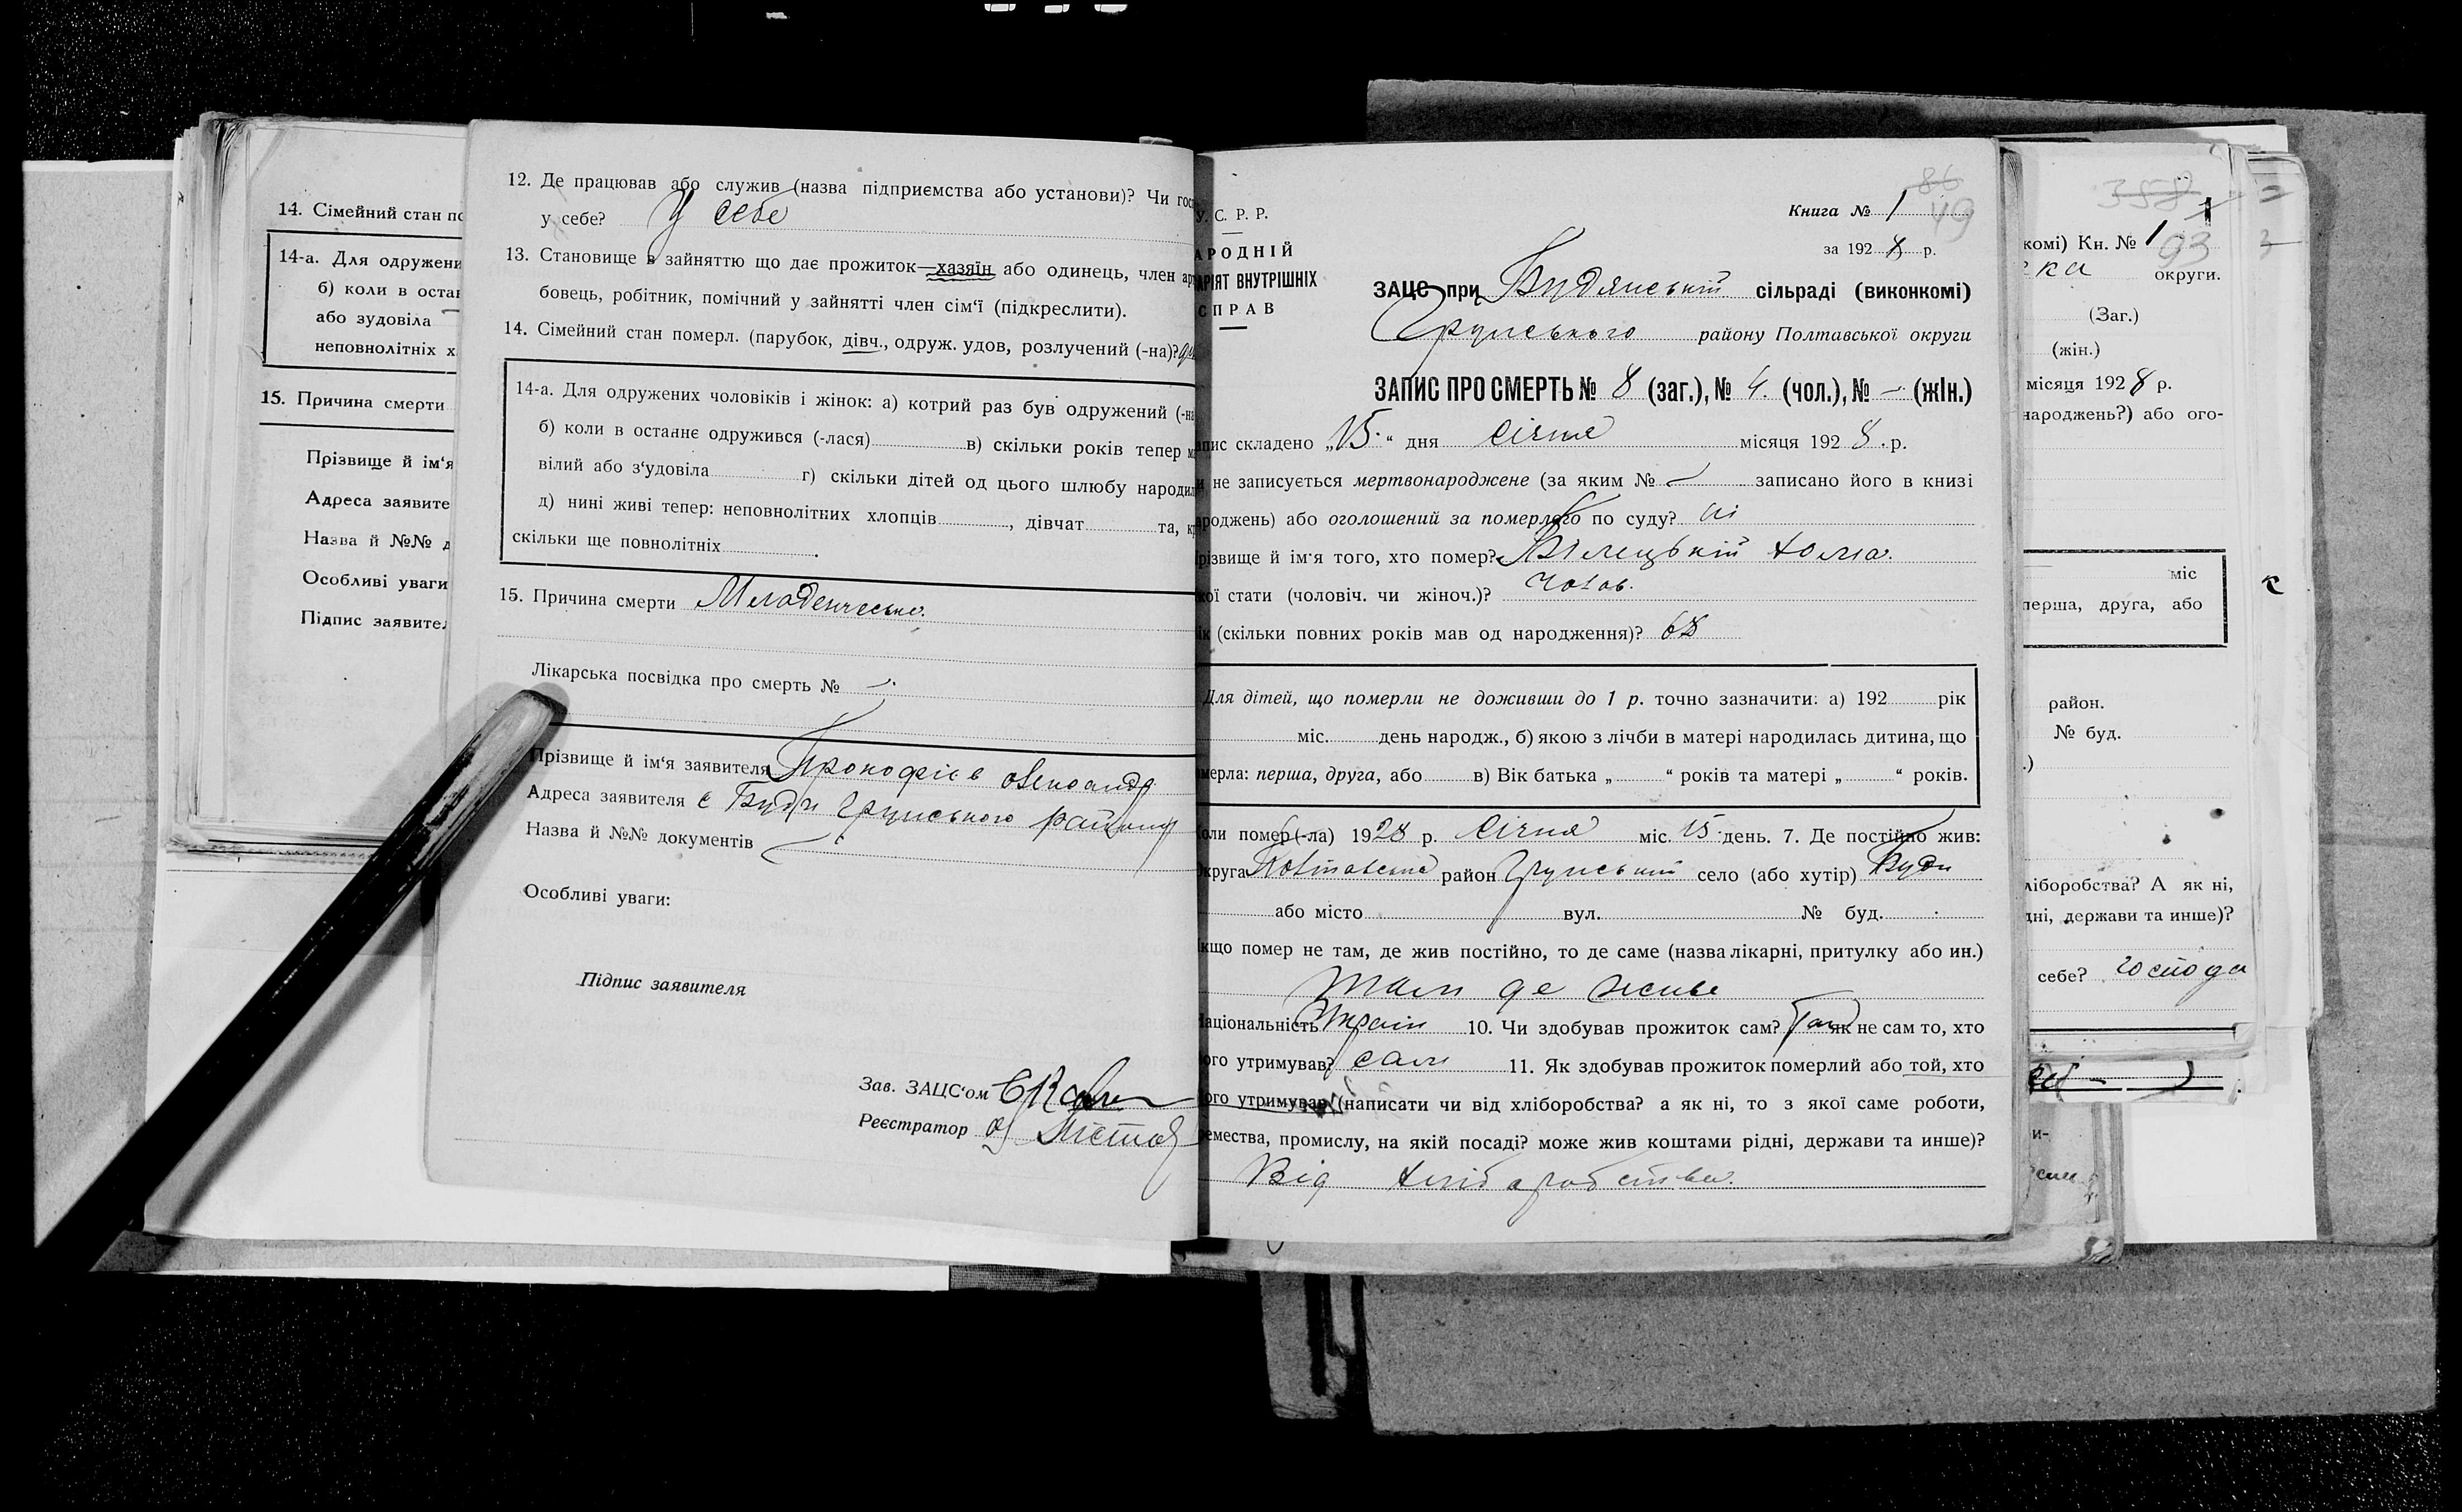 14. Сімейний стан по
14-а. Для одружени
б) коли в оста
або зудовіла
неповнолітніх х
15. Причина смерти
Прізвище й ім‘я
Адреса заявите
Назва й №№ д
Особливі уваги
Підпис заявител
12. Де працював або служив (назва підприємства або установи)? Чи гос
у себе? У себе
13. Становище в зайняттю що дає прожиток—хазяїн або одинець, член ар
бовець, робітник, помічний у зайнятті член сім‘ї (підкреслити).
14. Сімейний стан померл. (парубок, дівч., одруж. удов, розлучений (-на)?
14-а. Для одружених чоловіків і жінок: а) котрий раз був одружений (-на
б) коли в останнє одружився (-лася) в) скільки років тепер м
вілий або з‘удовіла г) скільки дітей од цього шлюбу народил
д) нині живі тепер: неповнолітних хлопців, дівчат та, кр
скільки ще повнолітніх.
15. Причина смерти Младенческа.
Лікарська посвідка про смерть № —
Прізвище й ім‘я заявителя Прокофієв
Адреса заявителя с Буди Грунського району
Назва й №№ документів —
Особливі уваги:
Підпис заявителя
Зав. ЗАЦС‘ом
Реєстратор
86
49
У. С. Р. Р.
Книга № 1
АРОДНІЙ
за 192 8 р.
АРІЯТ ВНУТРІШНІХ
СПРАВ
ЗАЦС при Будянській сільраді (виконкомі)
Грунського району Полтавської округи
ЗАПИС ПРО СМЕРТЬ № 8 (заг.), № 4. (чол.), № — (жін.)
апис складено „15.“ дня січня місяця 192 8 . р.
и не записується мертвонароджене (за яким № — записано його в книзі
ароджень) або оголошений за померлого по суду? ні
різвище й ім‘я того, хто помер? Білецькій Хома.
кої стати (чоловіч. чи жіноч.)? чолов.
ік (скільки повних років мав од народження)? 68
Для дітей, що померли не доживши до 1 р. точно зазначити: а) 192 рік
міс. день народж., б) якою з лічби в матері народилась дитина, що
мерла: перша, друга, або в) Вік батька „ “ років та матері „ “ років.
оли помер (-ла) 1928 р. Січня міс. 15 день. 7. Де постійно жив:
округа Полтавська район Грунській село (або хутір) Буди
або місто вул. № буд.
кщо помер не там, де жив постійно, то де саме (назва лікарні, притулку або ин.)
там де живе
аціональність Украін 10. Чи здобував прожиток сам? Так як не сам то, хто
ого утримував? сам 11. Як здобував прожиток померлий або той, хто
ого утримував (написати чи від хліборобства? а як ні, то з якої саме роботи,
ремества, промислу, на якій посаді? може жив коштами рідні, держави та инше)?
Від хліборобства.
358
93
комі) Кн. № 1
ка округи.
(Заг.)
(жін.)
місяця 192 8 р.
народжень?) або ого-
міс
перша, друга, або
район.
№ буд.
.)
ліборобства? А як ні,
дні, держави та инше)?
себе? господа
и-